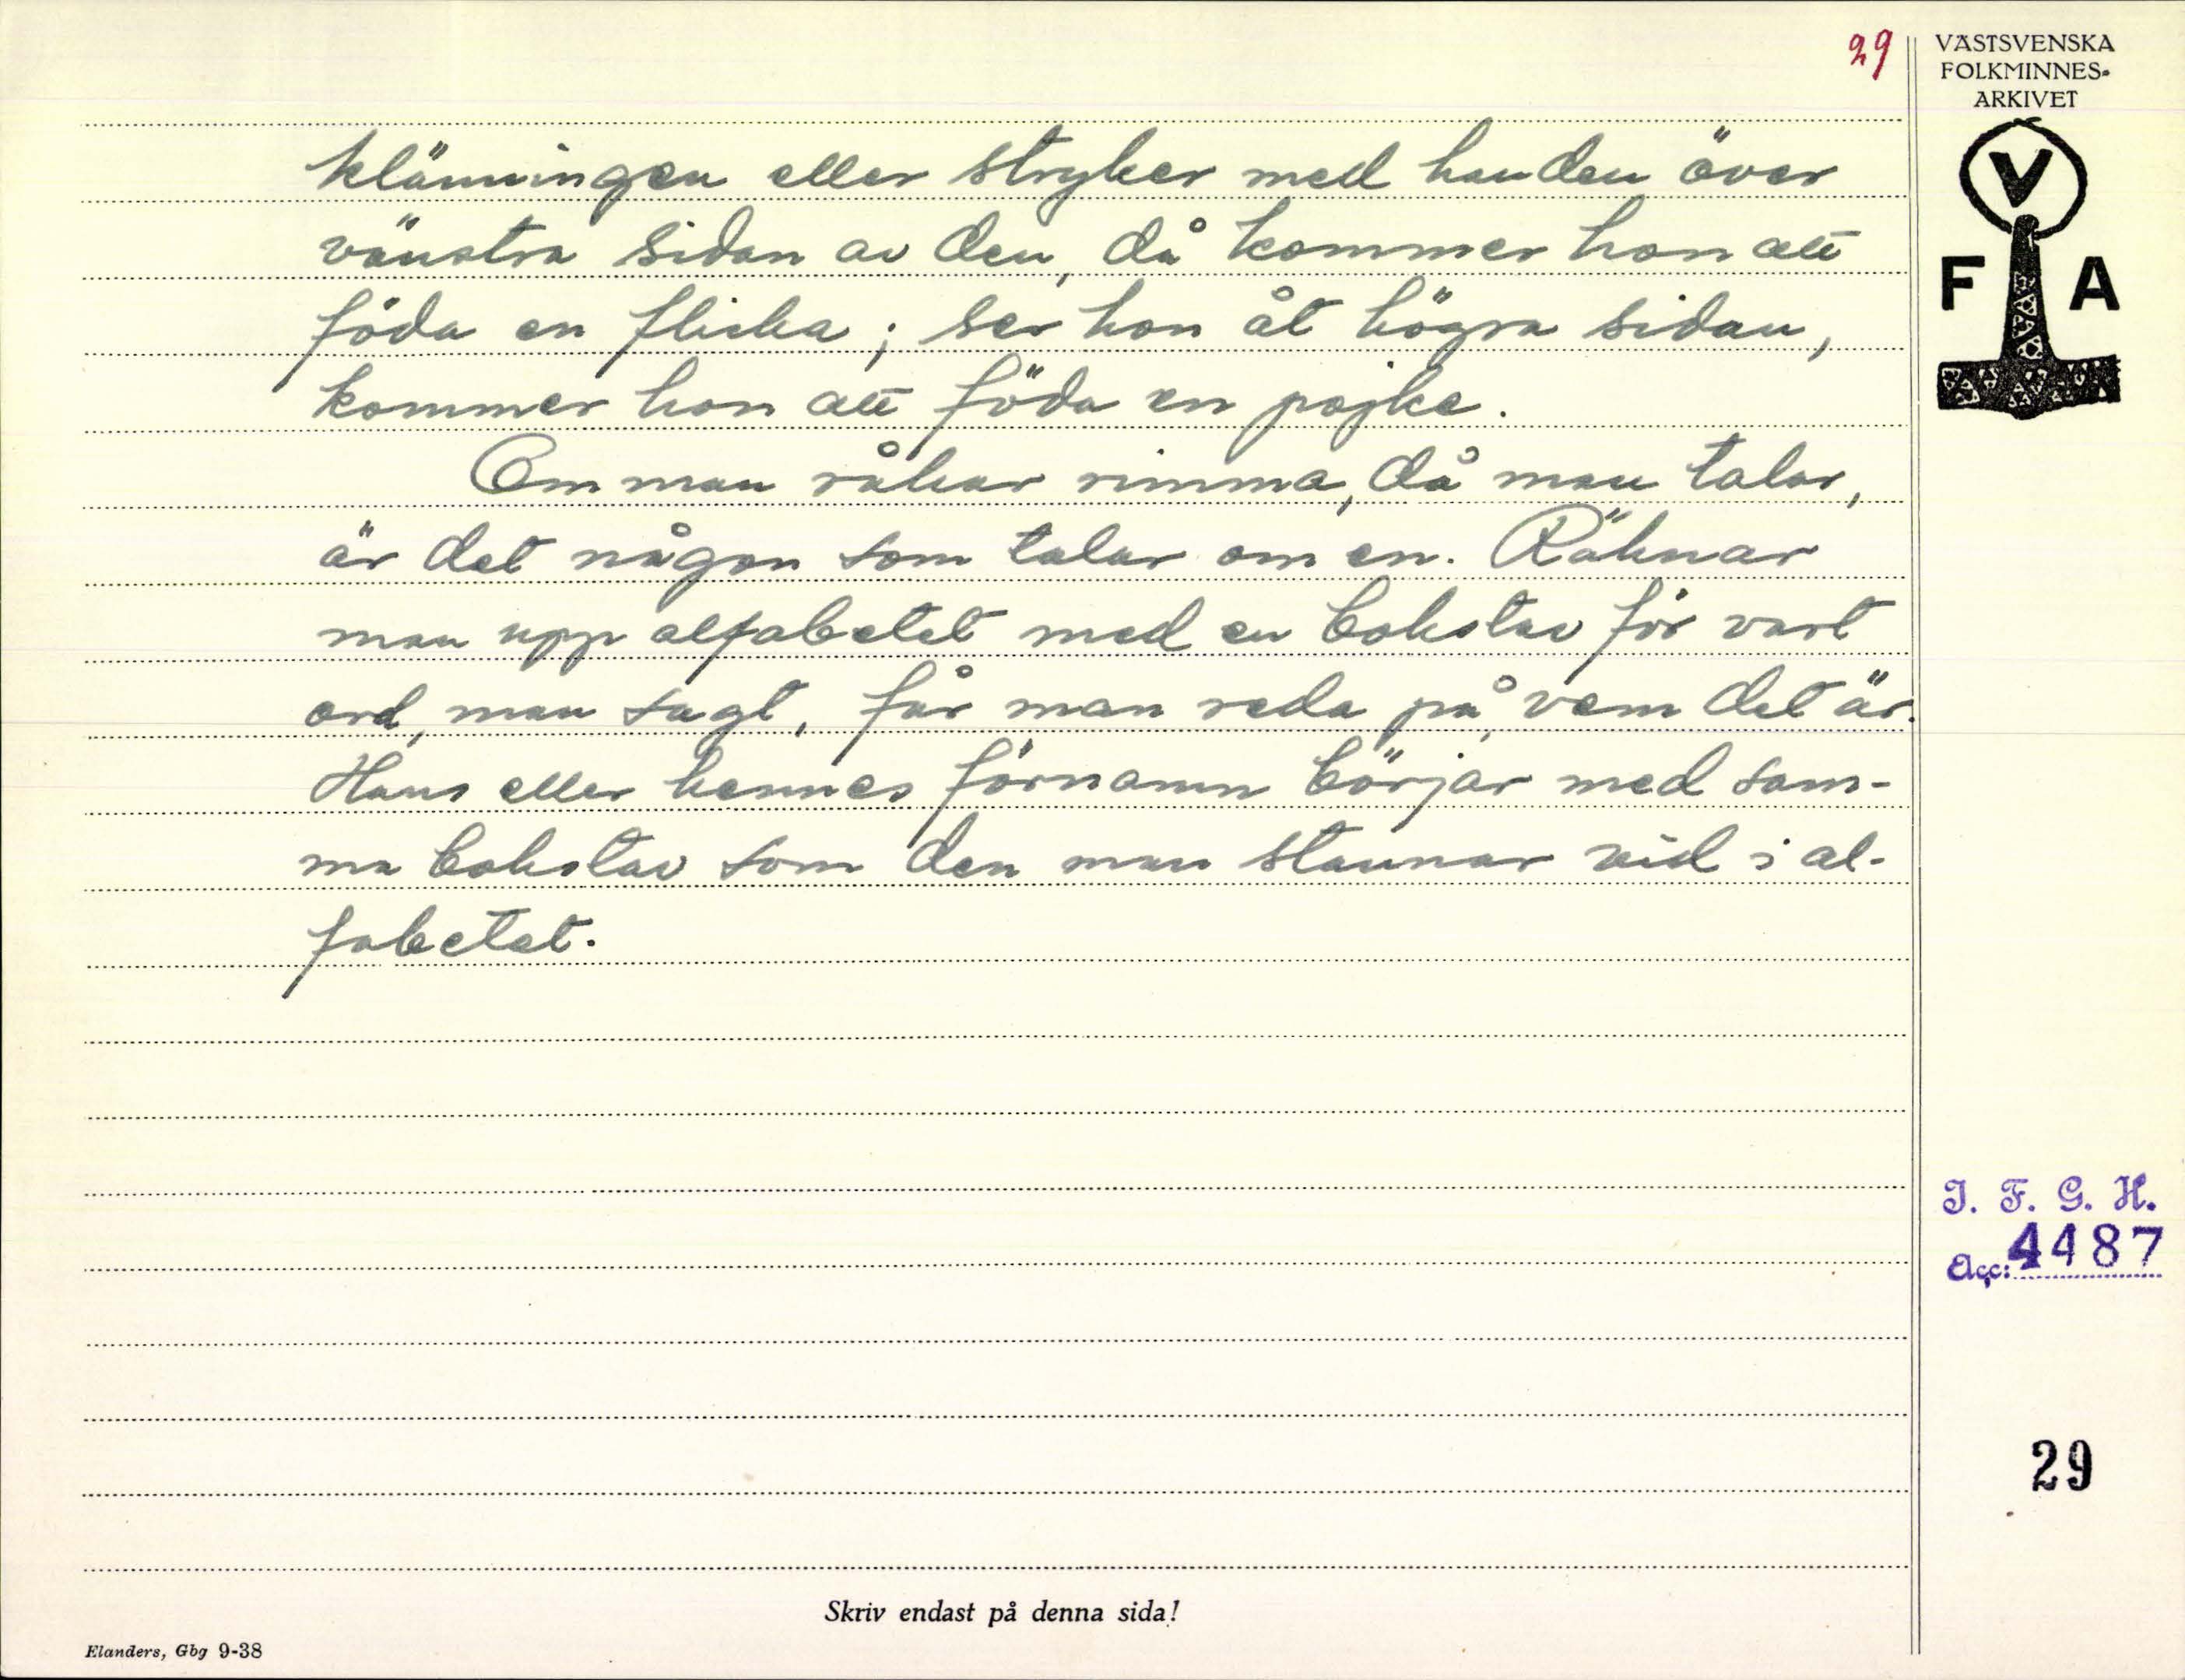 29
VÄSTSVENSKA
FOLKMINNES-
ARKIVET
V
F A
klänningen eller stryker med handen över
vänstra sidan av den, då kommer hon att
föda en flicka; ser hon åt högra sidan,
kommer hon att föda en pojke.
Om man råkar rimma, då man talar,
är det någon som talar om en. Räknar
man upp alfabetet med en bokstav för vart
ord, man sagt, får man reda på, vem det är.
Hans eller hennes förnamn börjar med sam-
ma bokstav som den man stannar vid i al-
fabetet.
I. F. G. H.
Acc: 4487
29
Skriv endast på denna sida!
Elanders, Gbg 9-38